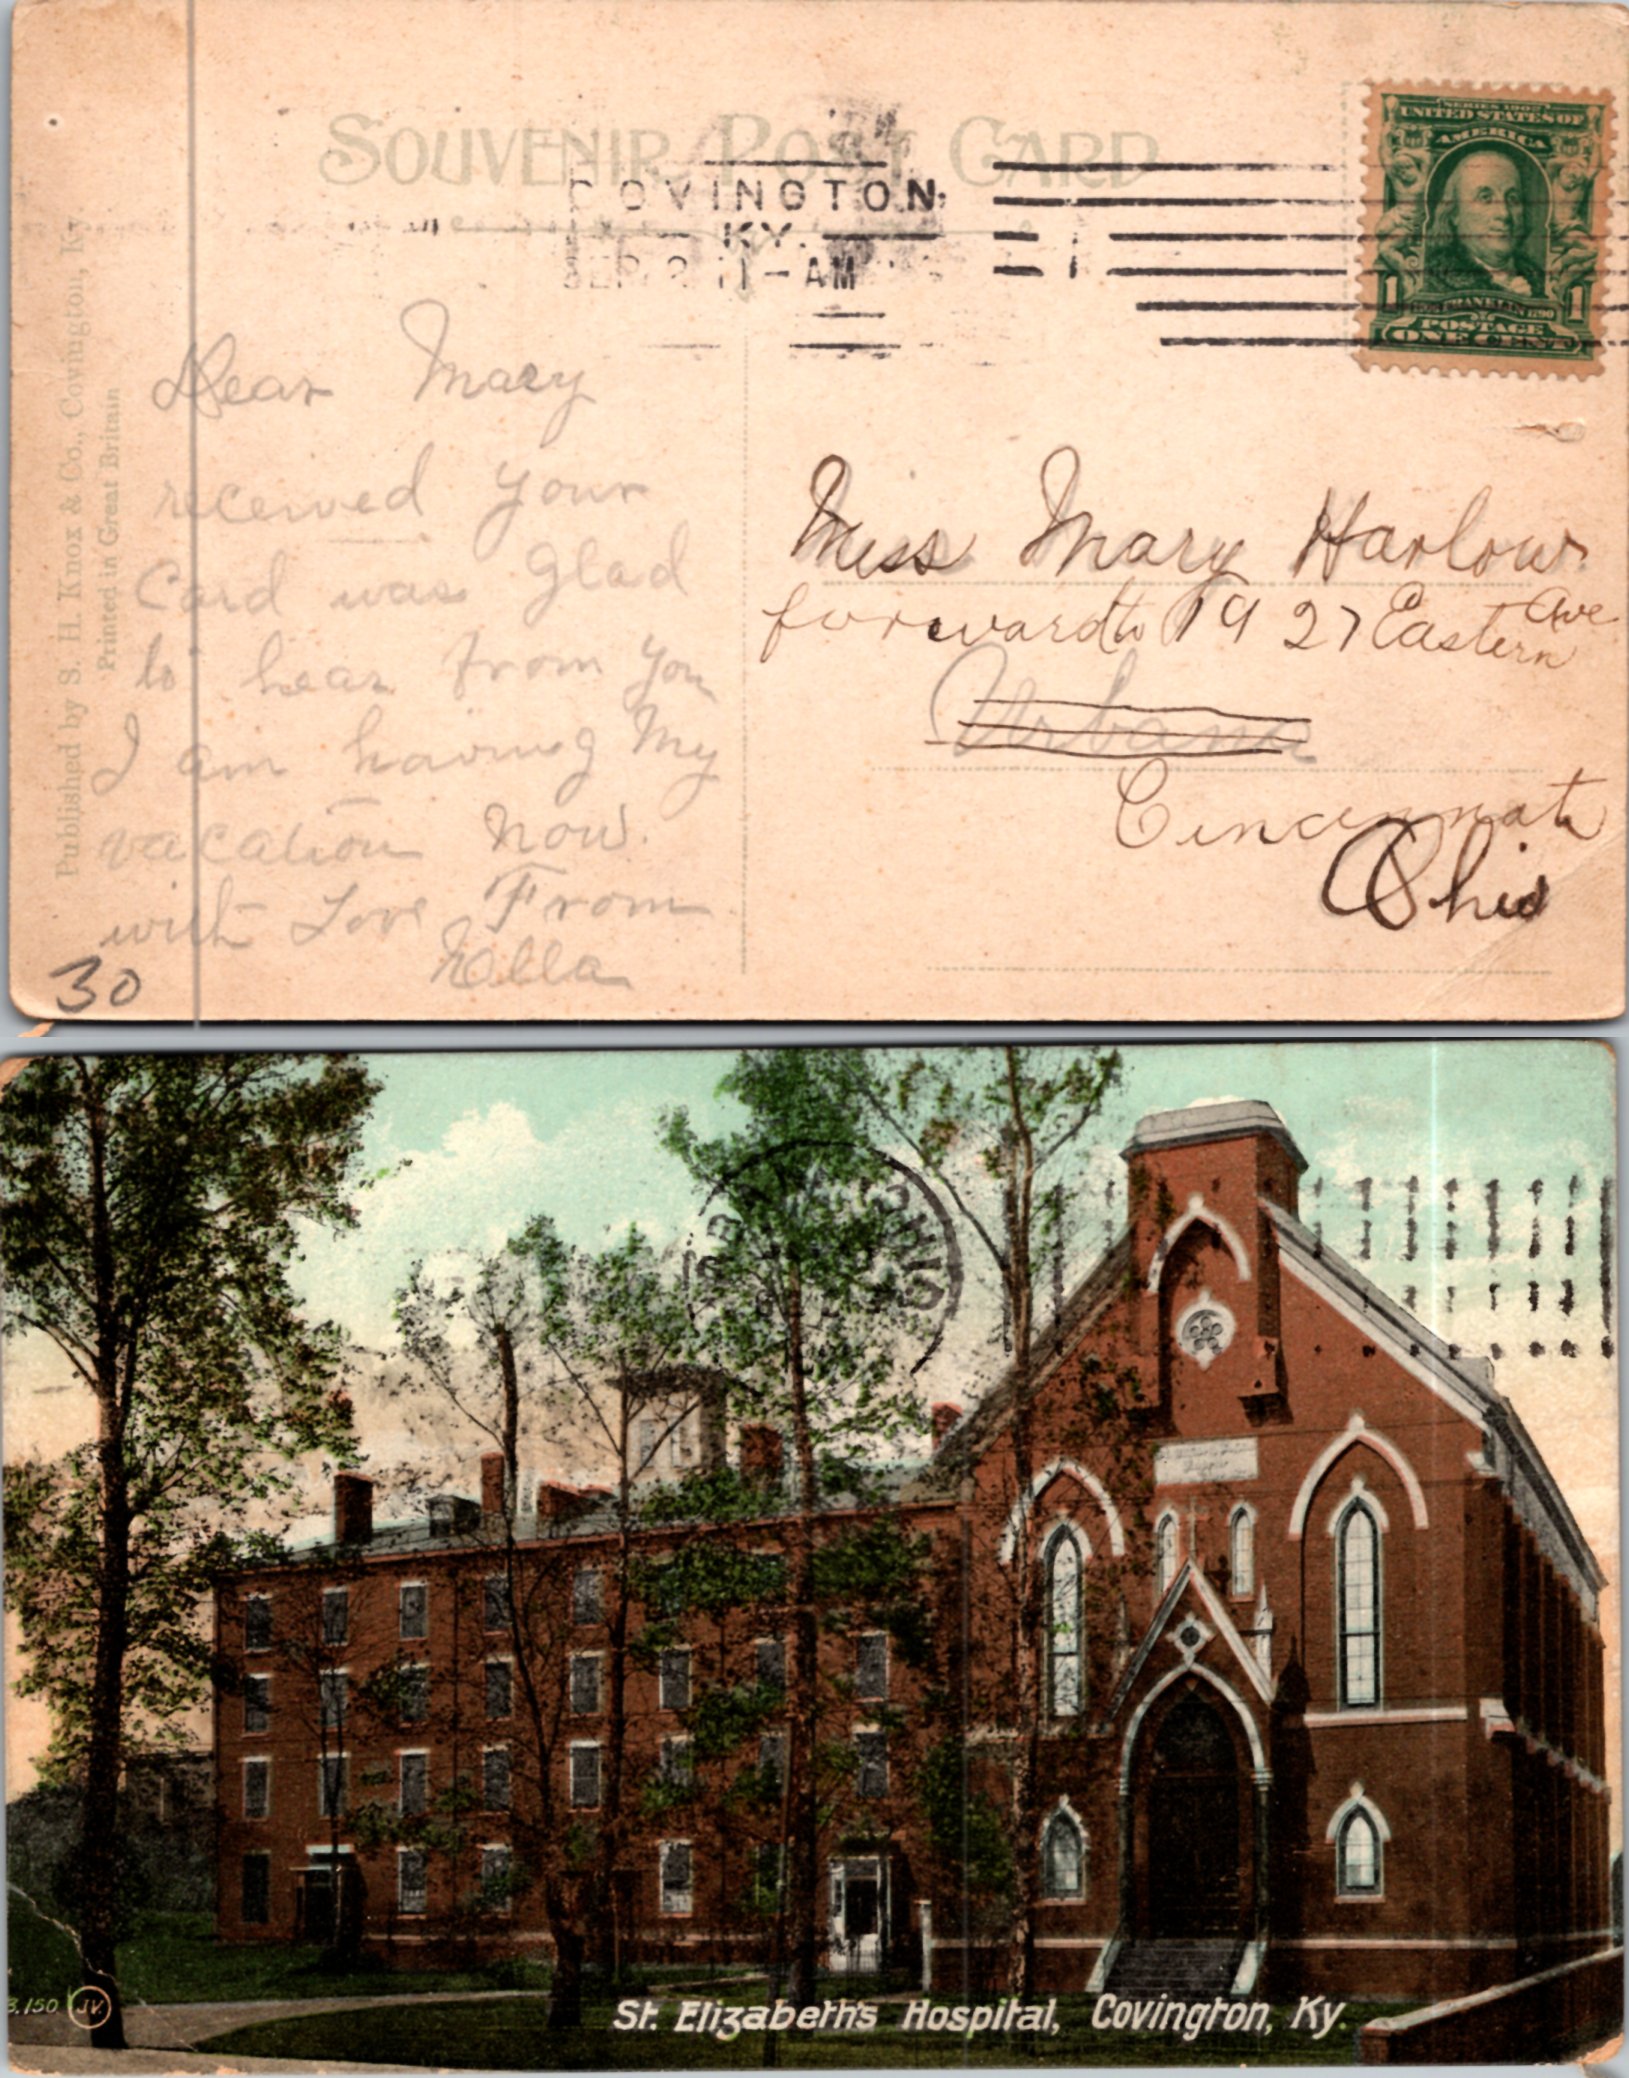 SOUVENIR POST CARD
COVINGTON
KY.
11-AM
SERIES 1902
UNITED STATES OF
AMERICA
1 1
POSTAGE
ONE CENT
Published by S. H. Knox & Co., Covington, Ky
Printed in Great Britain
Dear Mary
received your
Card was glad
to hear from you
I am having my
vacation now.
with Love From
Ella
30
Miss Mary Harlow
forward to 1927 Eastern Ave
Urbana
Cincinnati
Ohio
OHIO
3.150 JV.
St. Elizabeth's Hospital, Covington, Ky.